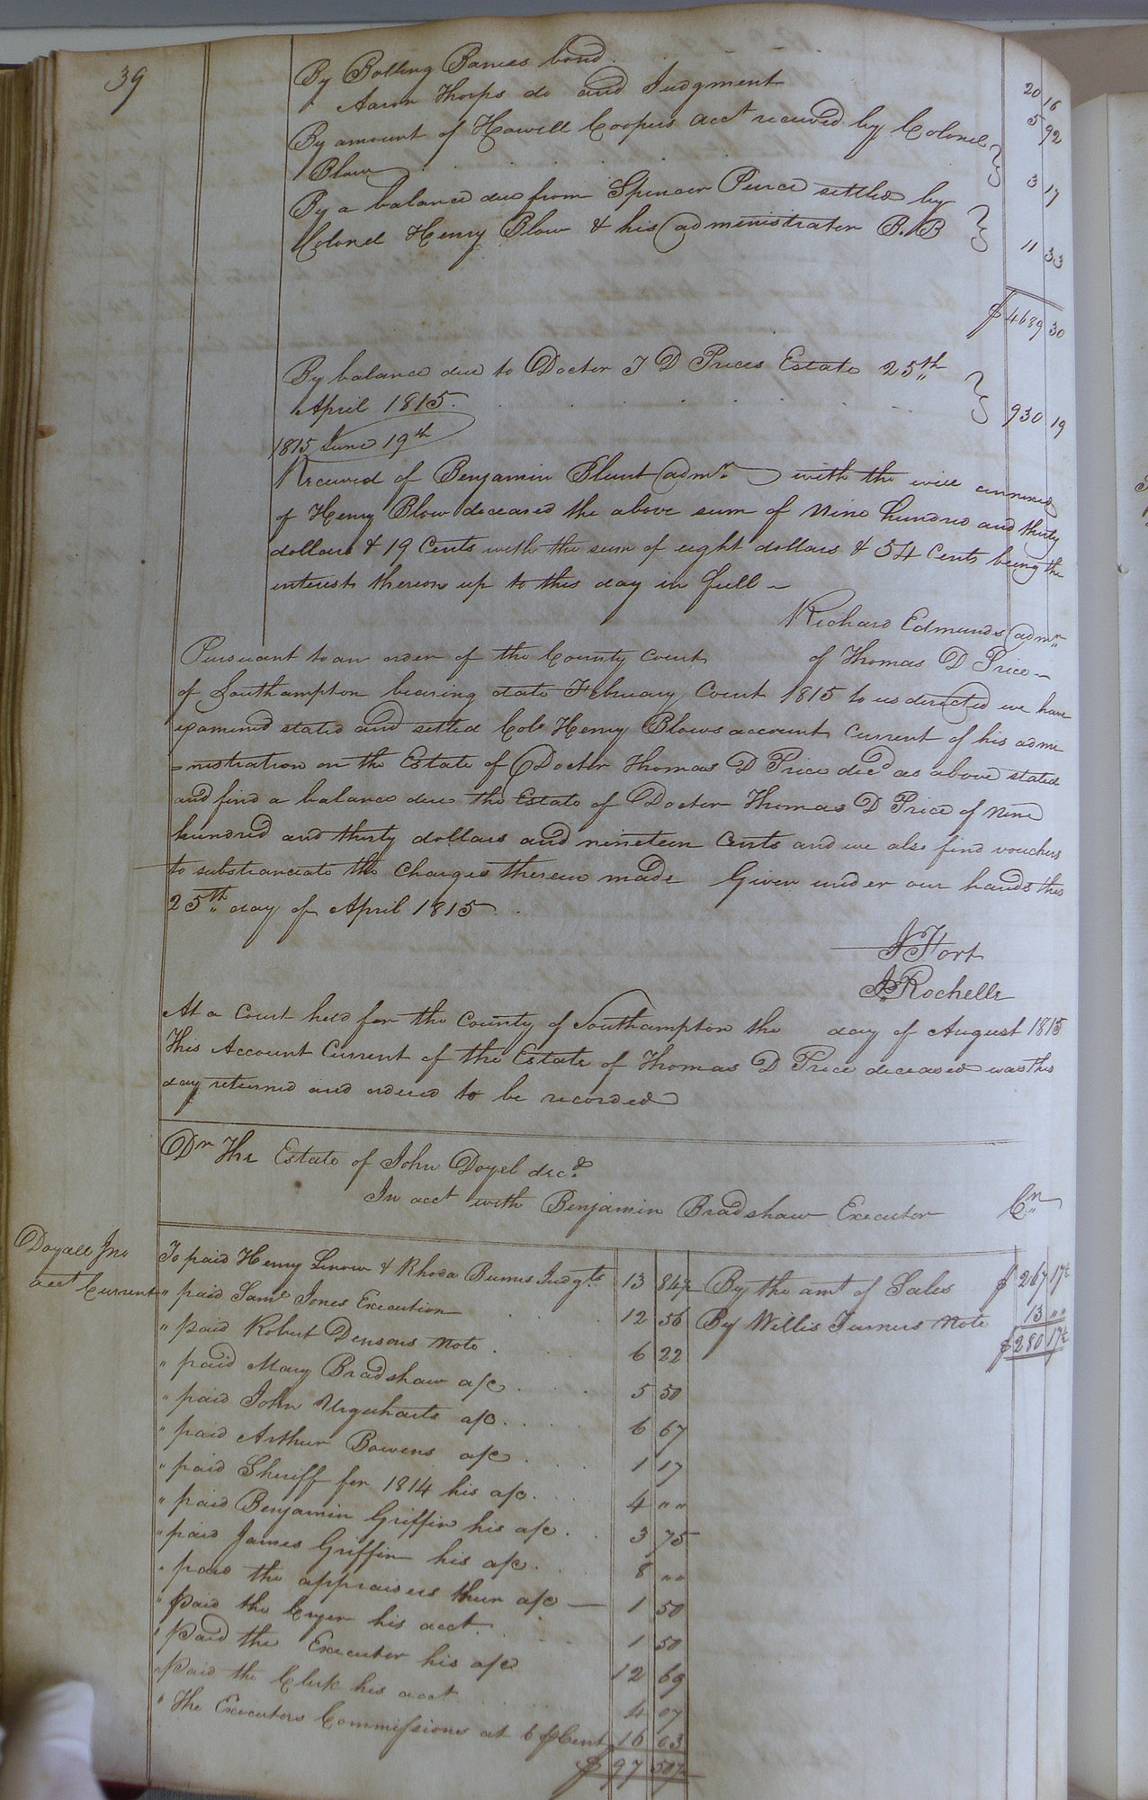 39
By Bolling Barnes bond 20 16
" Aaron Thorps do and Judgment 5 92
By amount of Howell Coopers acct received by Colonel
Blow 3 17
By a balance due from Spencer Peirce settled by
Colonel Henry Blow & his administrator B. B 11 33
$ 4689 30
By balance due to Doctor T D Prices Estate 25th
April 1815 930 19
1815 June 19th
Received of Benjamin Blunt admr with the will annexed
of Henry Blow deceased the above sum of Nine hundred and thirty
dollars & 19 Cents with the sum of eight dollars & 54 Cents being the
interest thereon up to this day in full
Richard Edmunds admr
of Thomas D Price
Pursuant to an order of the County Court
of Southampton bearing date February Court 1815 to us directed we have
examined stated and settled Colo Henry Blows account Current of his admi
-nistration on the Estate of Doctor Thomas D Price decd as above stated
and find a balance due the Estate of Doctor Thomas D Price of Nine
hundred and thirty dollars and nineteen Cents and we also find vouchers
to substranciate the Charges therein made Given under our hands this
25th day of April 1815
J Fort
J. Rochelle
At a Court held for the County of Southampton the day of August 1815
This Account Current of the Estate of Thomas D Price deceased was this
day returned and ordered to be recorded
Dr The Estate of John Doyel decd
In acct with Benjamin Bradshaw Executor Cr
Doyall Jno
acct Current
To paid Henry & Rhoda Judgts 13 84½ By the amt of Sales $ 267 17½
" paid Saml Jones Execution 12 56 By Willis Turners Note 13 " "
" paid Robert Densons Note 6 22 $ 280 17½
" paid Mary Bradshaw a/c 5 50
" paid John Urquharts a/c 6 67
" paid Arthur Bowens a/c 1 17
" paid Sheriff for 1814 his a/c 4 " "
" paid Benjamin Griffin his a/c 3 75
" paid James Griffin his a/c 8 " "
" paid the appraisers their a/c 1 50
" paid the Cryer his acct 1 50
" paid the Executor his a/c 12 69
" paid the Clerk his acct 4 07
" The Executors Commissions at 6 ⅌ Cent 16 03
$ 97 50½